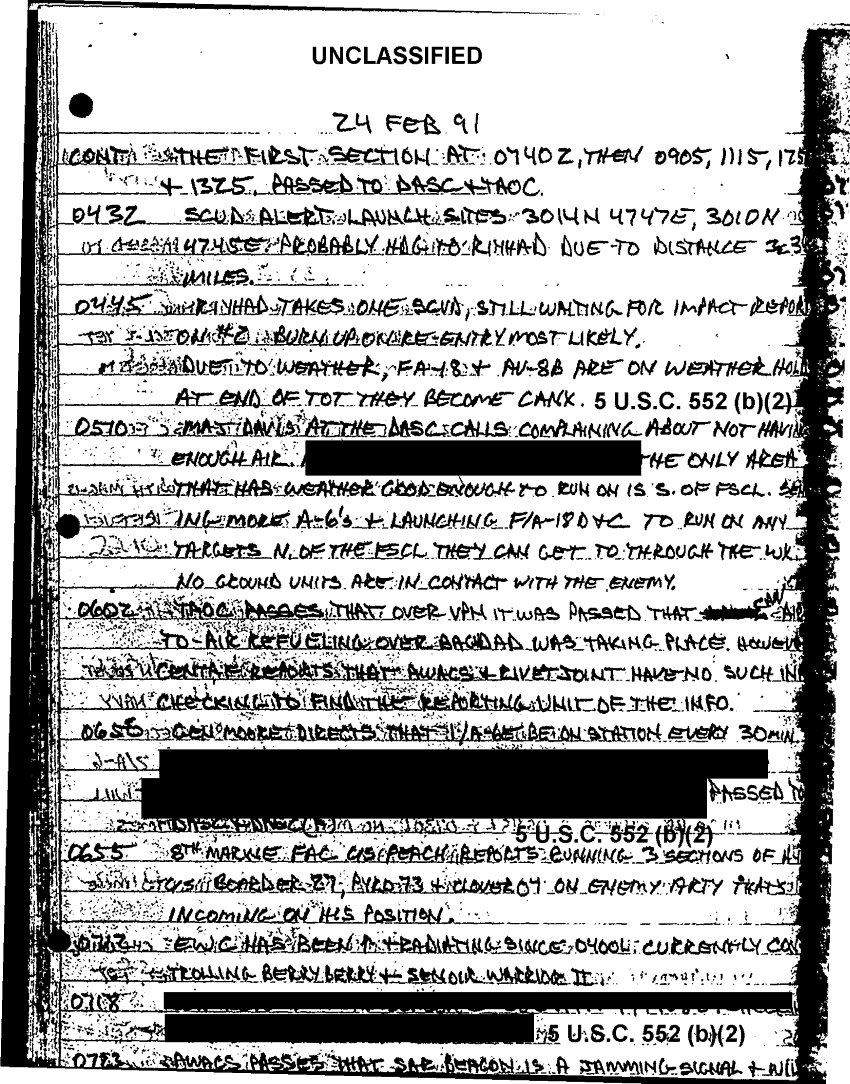 UNCLASSIFIED
24 FEB 91
CONT THE FIRST SECTION AT 0740Z, THEN 0905, 1115,
+ 1325. PASSED TO DASC + TAOC.
0432 SCUD ALERT LAUNCH SITES 3014N 4747E, 3010N
4745E PROBABLY HDG TO RIYHAD DUE TO DISTANCE
MILES.
0445 RIYHAD TAKES ONE SCUD, STILL WAITING FOR IMPACT REPOR
ON #2 BURN UP ON RE-ENTRY MOST LIKELY.
DUE TO WEATHER, FA-18 + AV-8B ARE ON WEATHER HOL
AT END OF TOT THEY BECOME CANX. 5 U.S.C. 552 (b)(2)
0510 MAJ DAVIS AT THE DASC CALLS COMPLAINING ABOUT NOT HAVIN
ENOUGH AIR. THE ONLY AREA
THAT HAS WEATHER GOOD ENOUGH TO RUN ON IS S. OF FSCL.
ING MORE A-6's + LAUNCHING F/A-18 D+C TO RUN ON ANY
TARGETS N. OF THE FSCL THEY CAN GET TO THROUGH THE WX.
NO GROUND UNITS ARE IN CONTACT WITH THE ENEMY.
0602 TAOC PASSES THAT OVER VPN IT WAS PASSED THAT CAN AIR
TO-AIR REFUELING OVER BAGDAD WAS TAKING PLACE. HOWEV
CENTAF REPORTS THAT AWACS + RIVET JOINT HAVE NO SUCH IN
CHECKING TO FIND THE REPORTING UNIT OF THE INFO.
0658 GEN MOORE DIRECTS THAT 1/A-6E BE ON STATION EVERY 30 MIN
PASSED TO
DASC + DASC(A)
5 U.S.C. 552 (b)(2)
0655 8TH MARINE FAC C/S PEACH REPORTS RUNNING 3 SECTIONS OF
C/S BOARDER 27, PYRO 73 + CLOVER 07 ON ENEMY ARTY THATS
INCOMING ON HIS POSITION.
EWC HAS BEEN RADIATING SINCE 0400L. CURRENTLY CON
TROLLING BERRYBERRY + SENOIR WARRIOR II
0718
5 U.S.C. 552 (b)(2)
0723 AWACS PASSES THAT SAR BEACON IS A JAMMING SIGNAL +